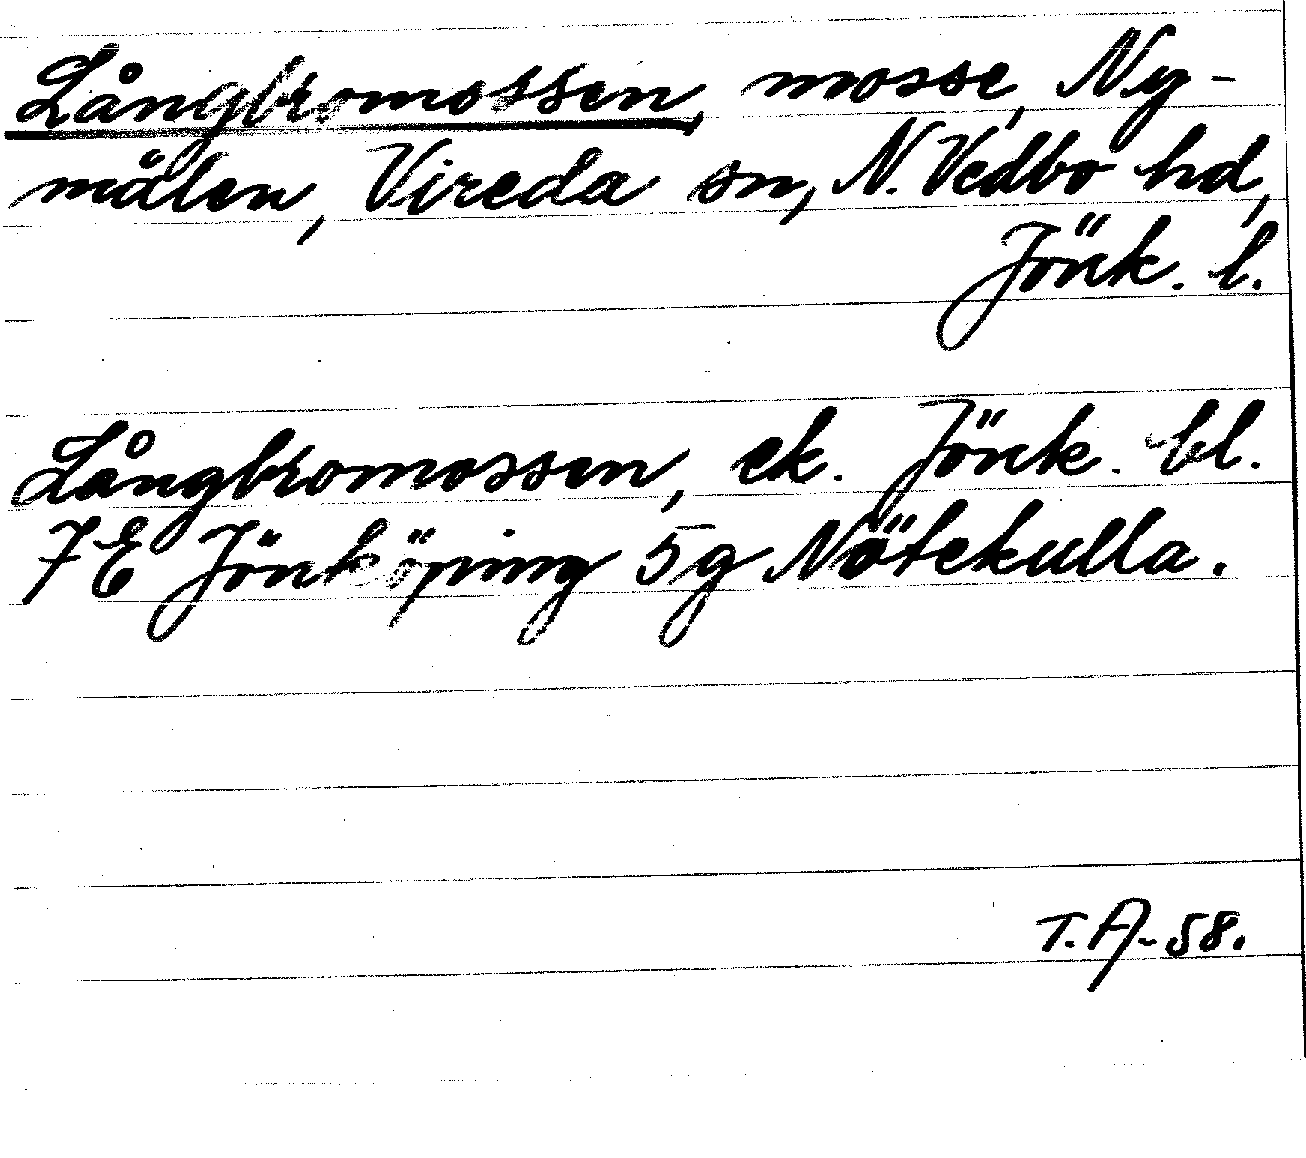 Långbromossen, mosse, Ny-
målen, Vireda sn, N. Vedbo hd,
Jönk. l.
Långbromossen, ek. Jönk. bl.
7E Jönköping 5g Nötekulla.
T.A-58.